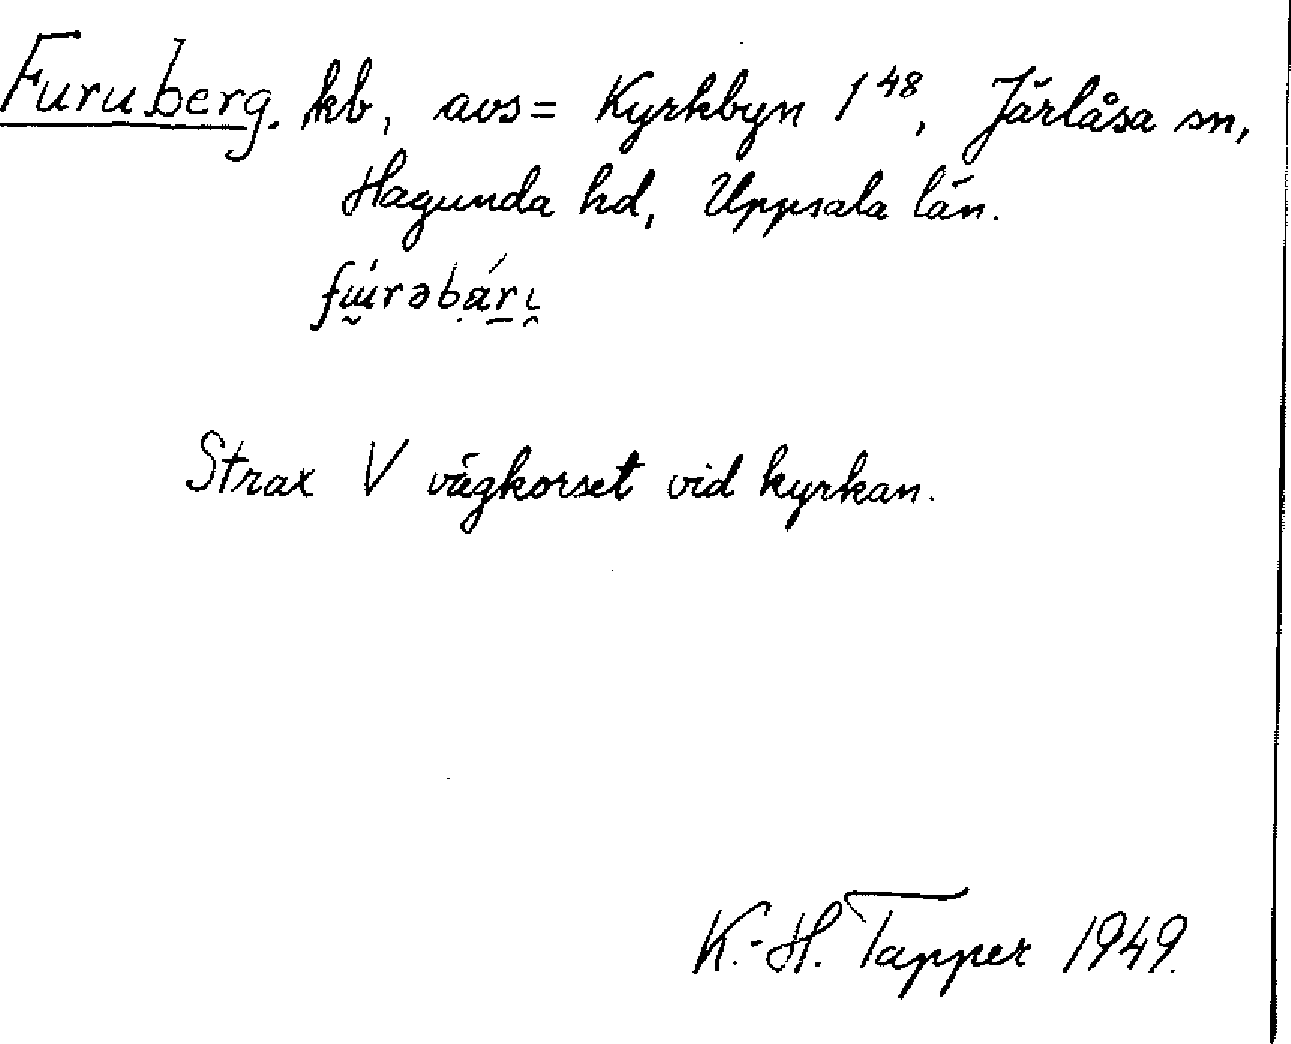 Furuberg. kb, avs= Kyrkbyn 1⁴⁸, Järlåsa sn,
Hagunda hd, Uppsala län.
Strax V vägkorset vid kyrkan.
K.-H. Tapper 1949.